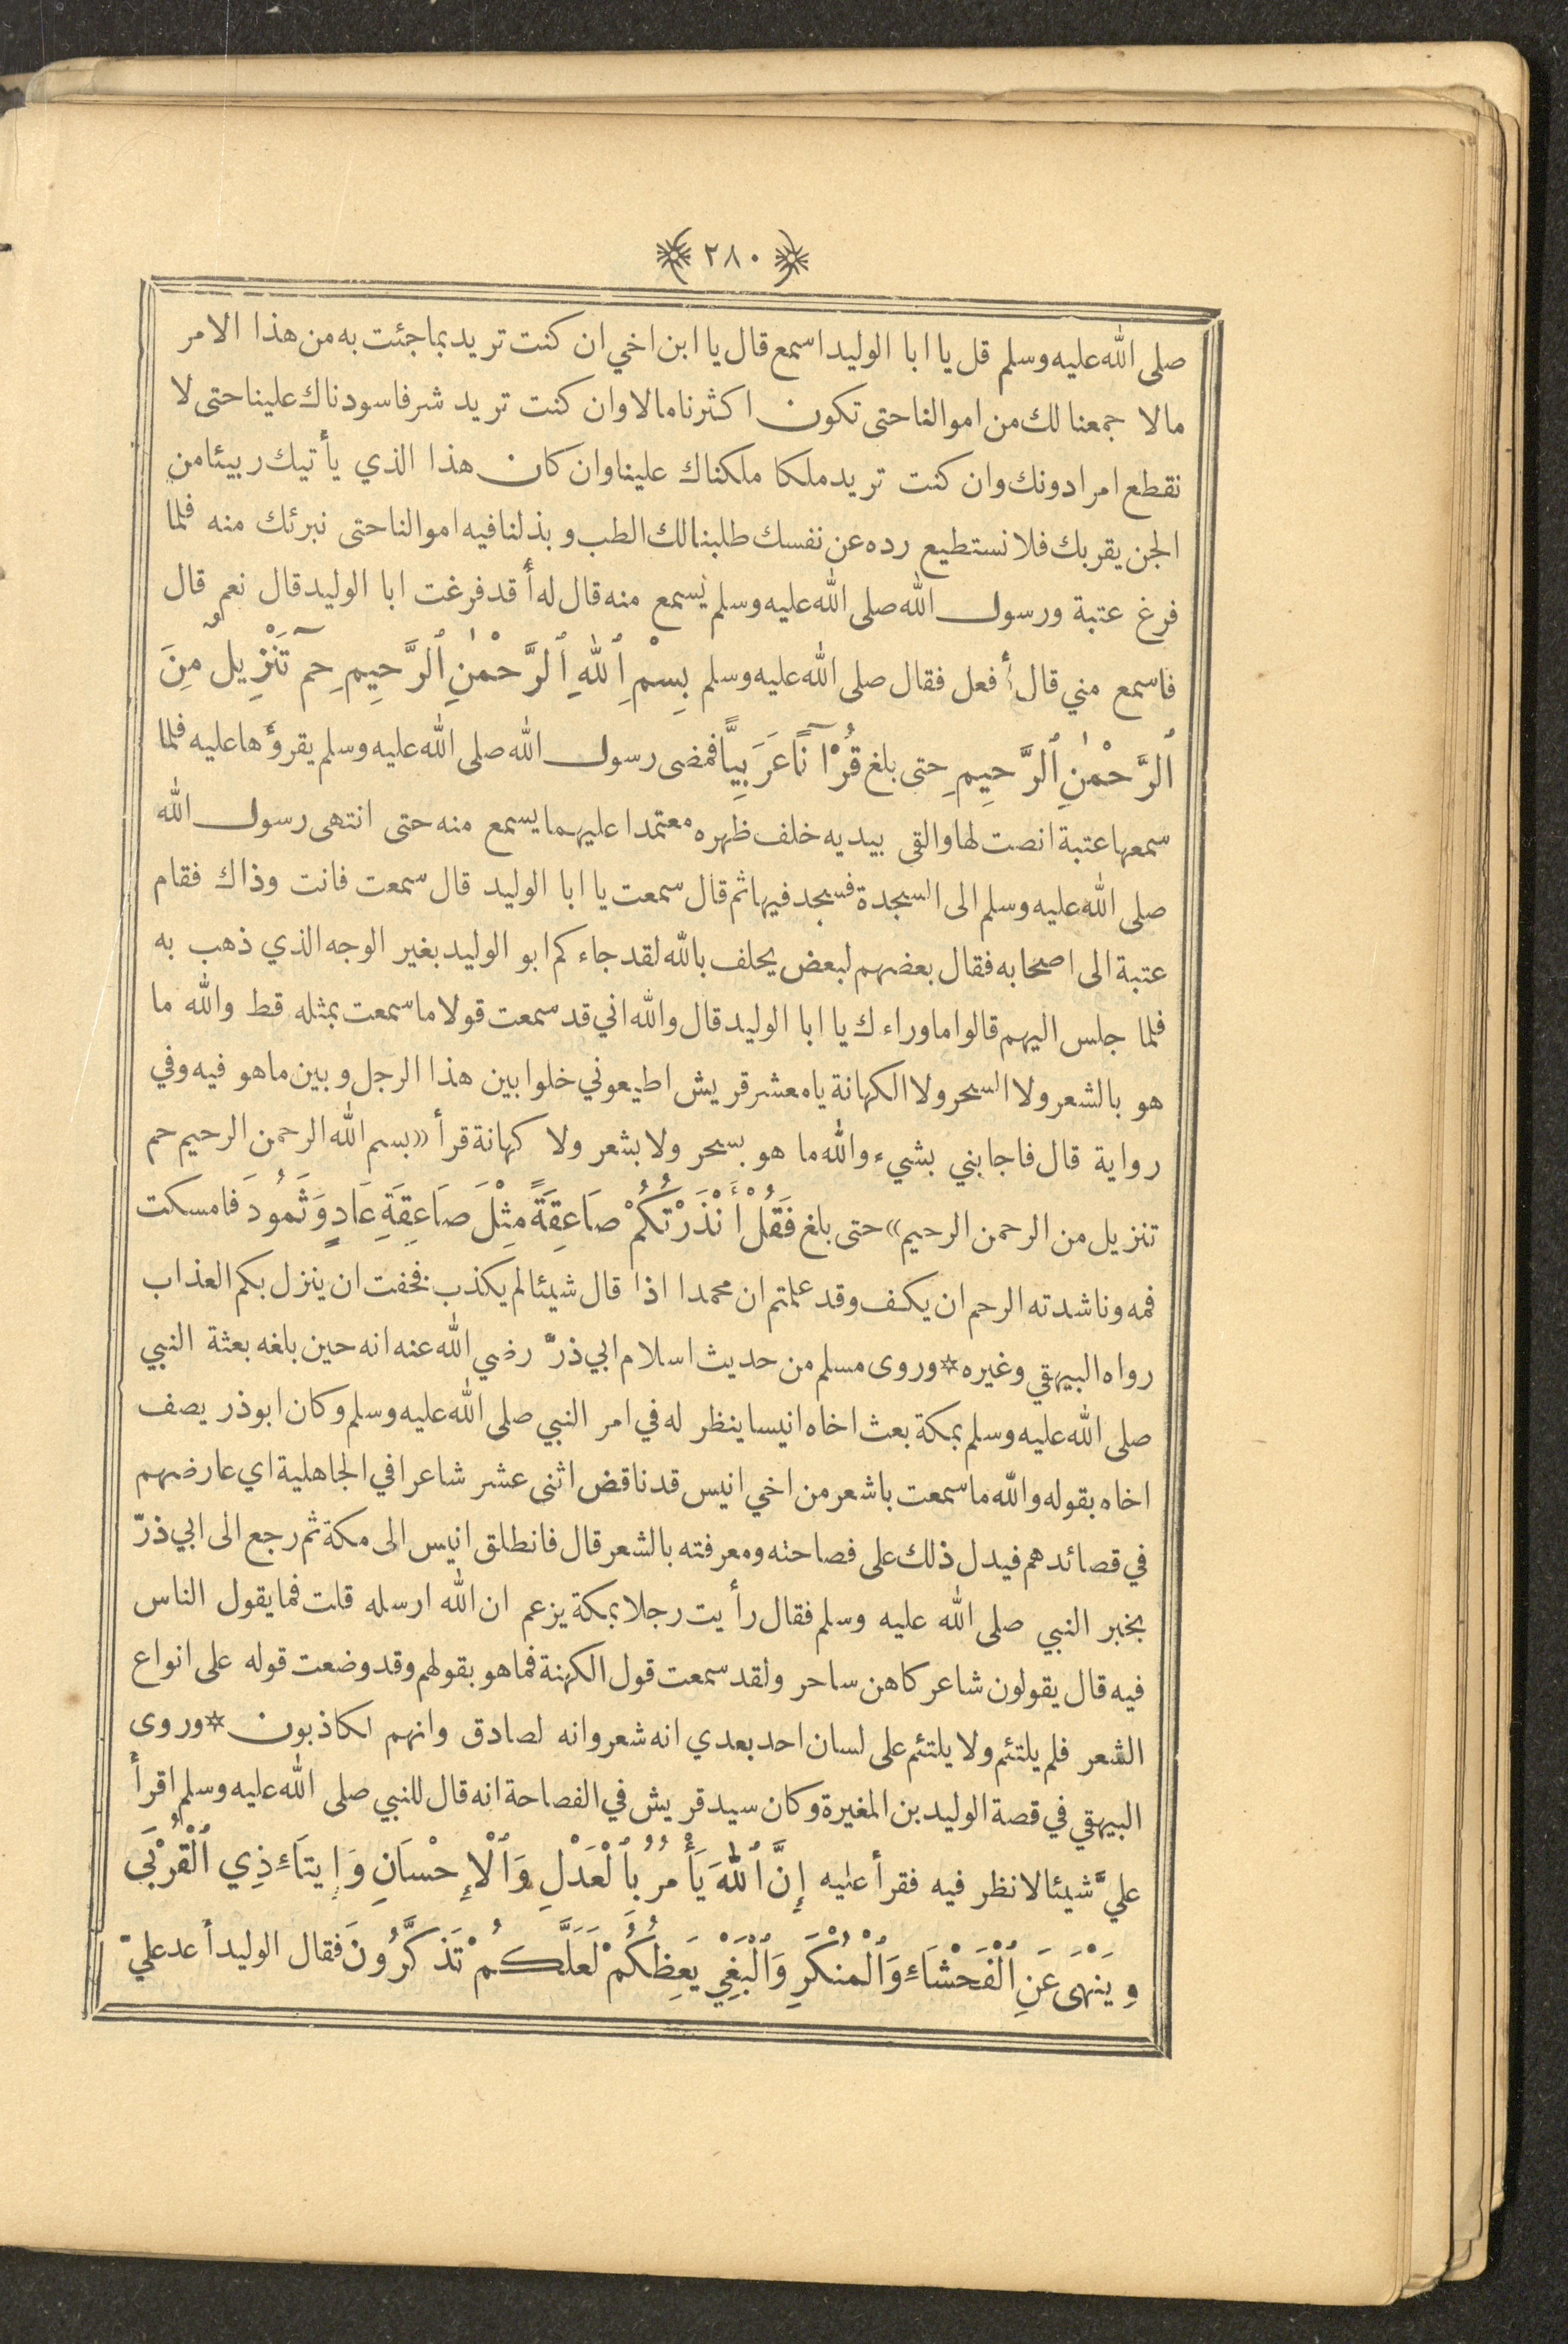 ٢٨٠
صلى الله عليه وسلم قل يا ابا الوليد اسمع قال يا ابن اخي ان كنت تريد بما جئت به من هذا الامر
مالا جمعنا لك من اموالنا حتى تكون اكثرنا مالا وان كنت تريد شرفا سودناك علينا حتى لا
نقطع امرا دونك وان كنت تريد ملكا ملكناك علينا وان كان هذا الذي يأتيك ربيئا من
الجن يقربك فلا نستطيع رده عن نفسك طلبنا لك الطب و بذلنا فيه اموالنا حتى نبرئك منه فلما
فرغ عتبة ورسول الله صلى الله عليه وسلم يسمع منه قال له أقد فرغت ابا الوليد قال نعم قال
فاسمع مني قال أفعل فقال صلى الله عليه وسلم بِسْمِ ٱللهِ ٱلرَّحْمٰنِ ٱلرَّحِيمِ حمٓ تَنْزِيلٌ مِنَ
ٱلرَّحْمٰنِ ٱلرَّحِيمِ حتى بلغ قُرْآنًا عَرَبِيًّا فمضى رسول الله صلى الله عليه وسلم يقرؤها عليه فلما
سمعها عتبة انصت لها والقى بيديه خلف ظهره معتمدا عليهما يسمع منه حتى انتهى رسول الله
صلى الله عليه وسلم الى السجدة فسجد فيها ثم قال سمعت يا ابا الوليد قال سمعت فانت وذاك فقام
عتبة الى اصحابه فقال بعضهم لبعض يحلف بالله لقد جاءكم ابو الوليد بغير الوجه الذي ذهب به
فلما جلس اليهم قالوا ما وراءك يا ابا الوليد قال والله اني قد سمعت قولا ما سمعت بمثله قط والله ما
هو بالشعر ولا السحر ولا الكهانة يا معشر قريش اطيعوني خلوا بين هذا الرجل و بين ما هو فيه وفي
رواية قال فاجابني بشيء والله ما هو بسحر ولا بشعر ولا كهانة قرأ «بسم الله الرحمن الرحيم حم
تنزيل من الرحمن الرحيم» حتى بلغ فَقُلْ أَنْذَرْتُكُمْ صَاعِقَةً مِثْلَ صَاعِقَةِ عَادٍ وَثَمُودَ فامسكت
فمه وناشدته الرحم ان يكف وقد علمتم ان محمدا اذا قال شيئا لم يكذب فخفت ان ينزل بكم العذاب
رواه البيهقي وغيره * وروى مسلم من حديث اسلام ابي ذرّ رضي الله عنه انه حين بلغه بعثة النبي
صلى الله عليه وسلم بمكة بعث اخاه انيسا ينظر له في امر النبي صلى الله عليه وسلم وكان ابو ذر يصف
اخاه بقوله والله ما سمعت باشعر من اخي انيس قد ناقض اثنى عشر شاعرا في الجاهلية اي عارضهم
في قصائدهم فيدل ذلك على فصاحته ومعرفته بالشعر قال فانطلق انيس الى مكة ثم رجع الى ابي ذرّ
بخبر النبي صلى الله عليه وسلم فقال رأيت رجلا بمكة يزعم ان الله ارسله قلت فما يقول الناس
فيه قال يقولون شاعر كاهن ساحر ولقد سمعت قول الكهنة فما هو بقولهم وقد وضعت قوله على انواع
الشعر فلم يلتئم ولا يلتئم على لسان احد بعدي انه شعر وانه لصادق وانهم لكاذبون * وروى
البيهقي في قصة الوليد بن المغيرة وكان سيد قريش في الفصاحة انه قال للنبي صلى الله عليه وسلم اقرأ
عليَّ شيئا لانظر فيه فقرأ عليه إِنَّ ٱللهَ يَأْمُرُ بِٱلْعَدْلِ وَٱلْإِحْسَانِ وَإِيتَاءِ ذِي ٱلْقُرْبَى
وَيَنْهَى عَنِ ٱلْفَحْشَاءِ وَٱلْمُنْكَرِ وَٱلْبَغْيِ يَعِظُكُمْ لَعَلَّكُمْ تَذَكَّرُونَ فقال الوليد أعد عليّ